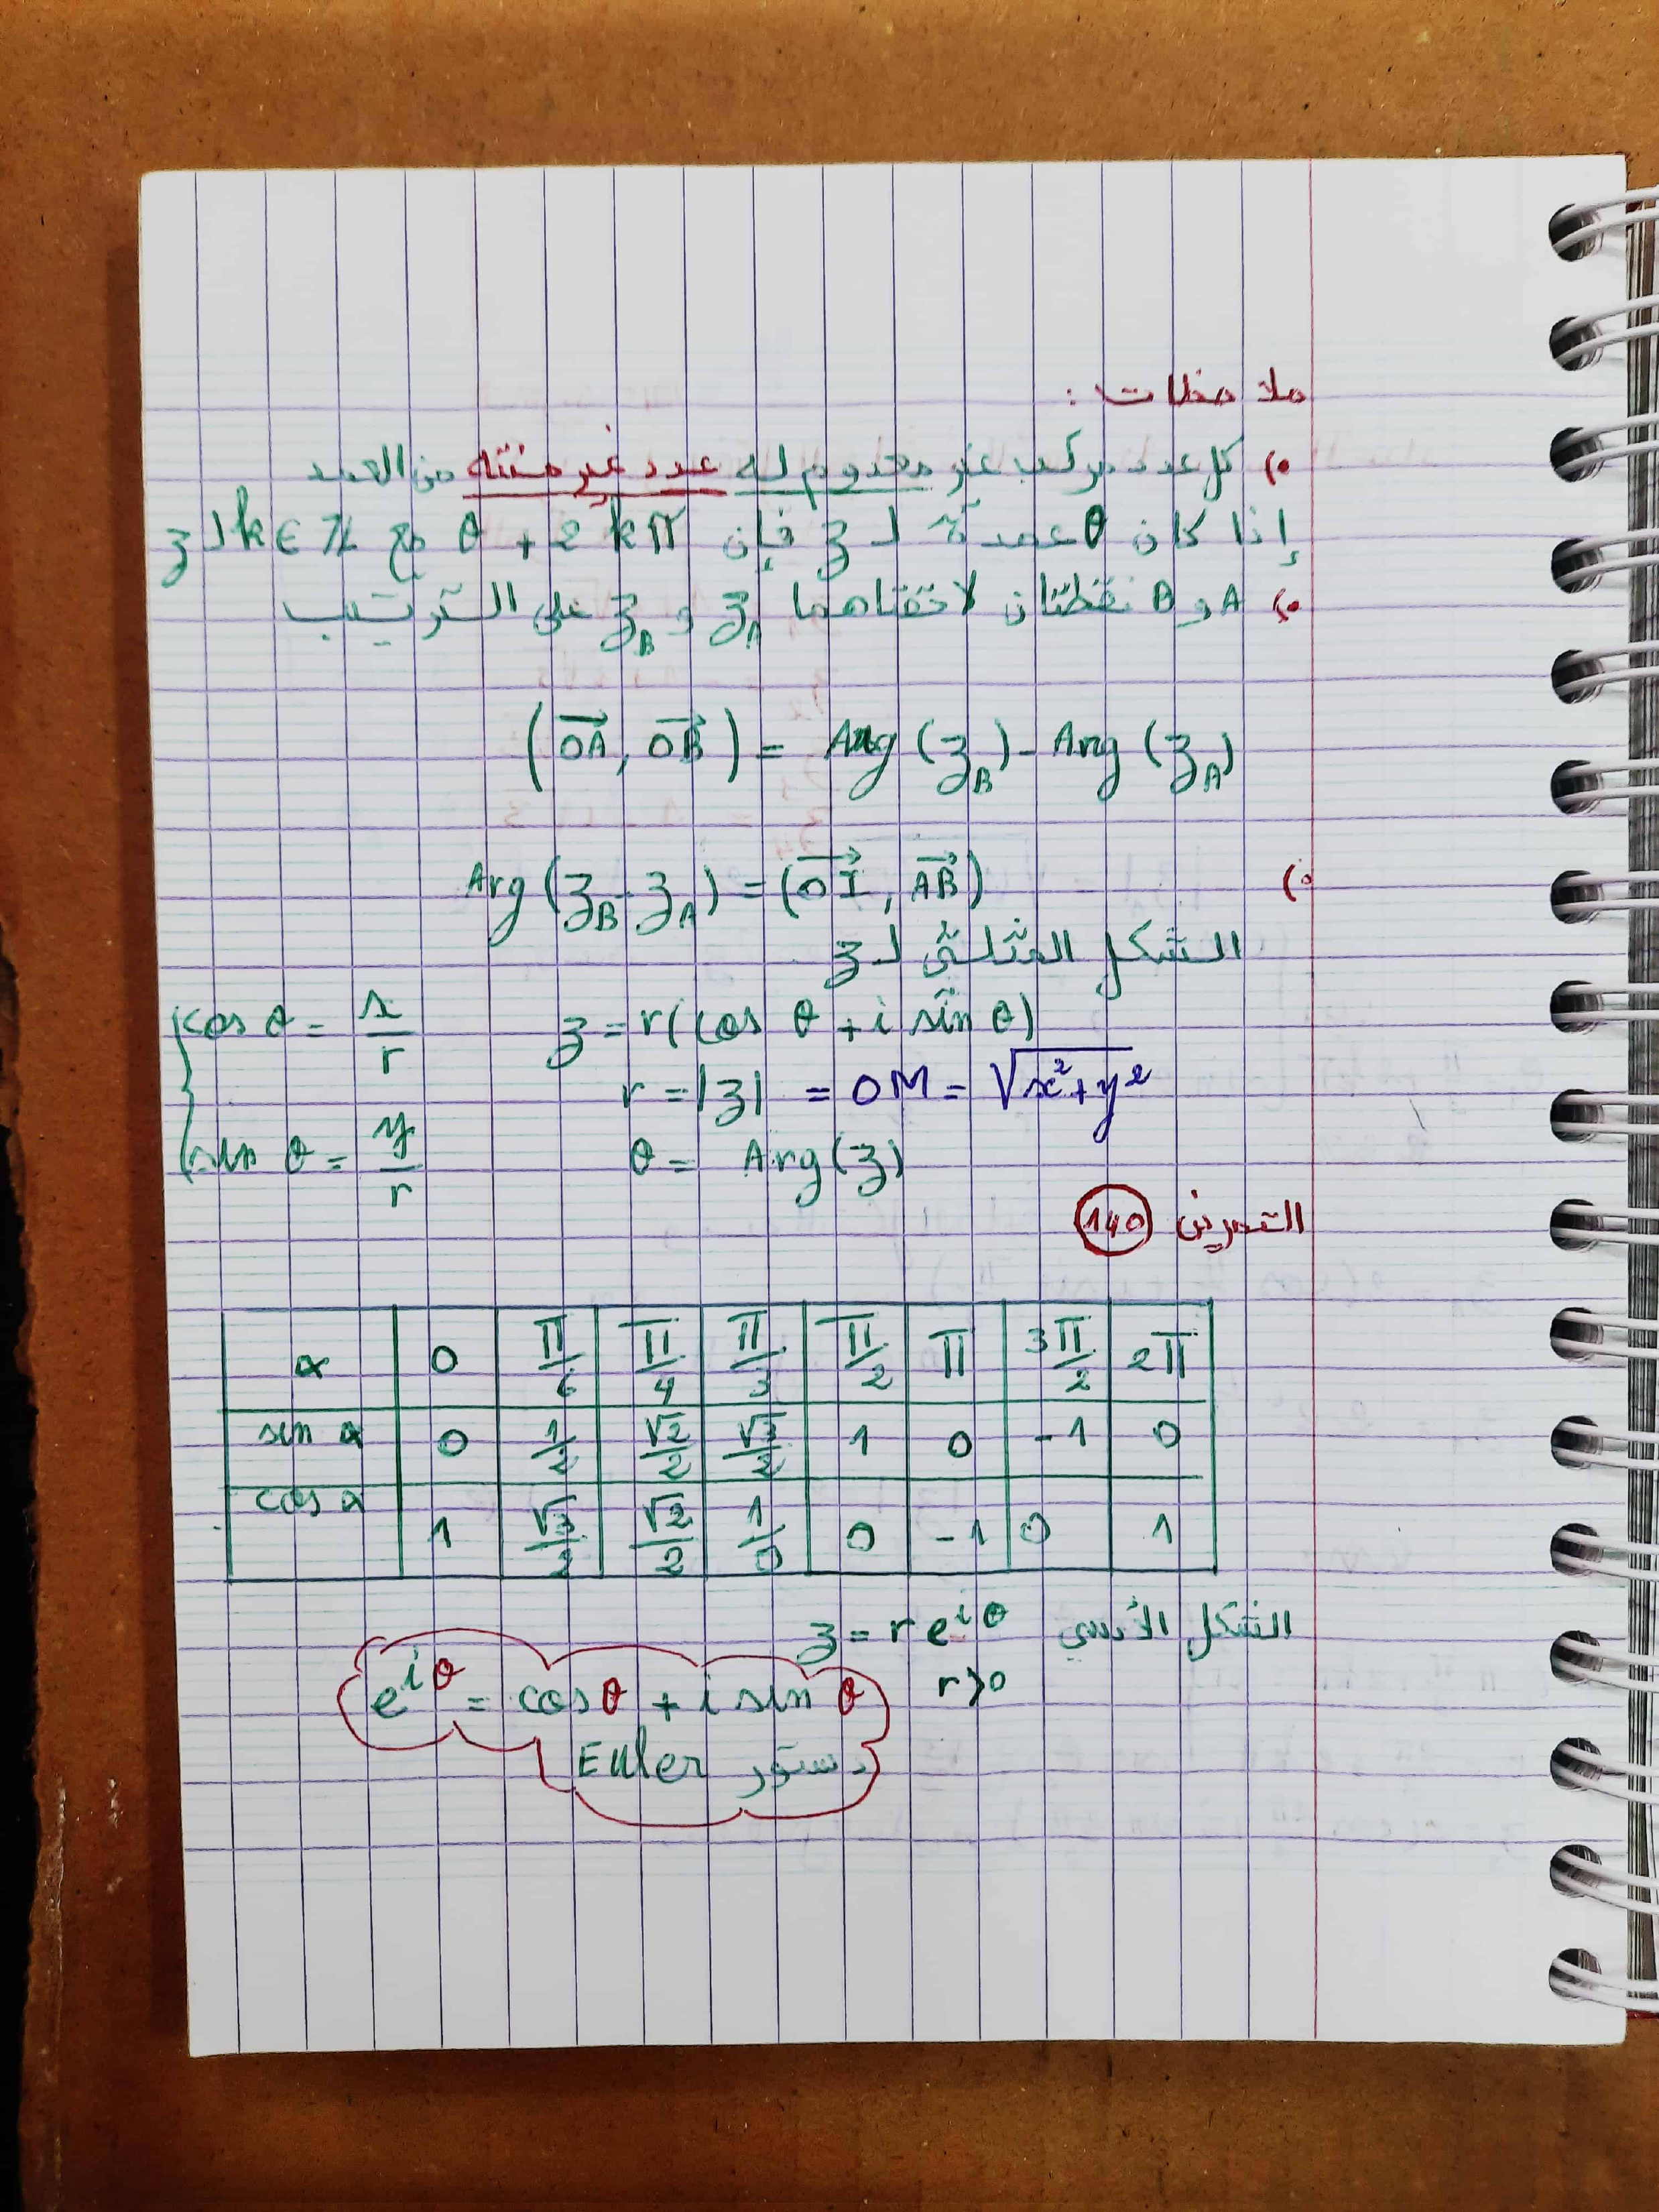 ملاحظات :
•) كل عدد مركب غير معدوم له عدد غير منته من العمد
إذا كان θ عمدة لـ z فإن θ + 2kπ مع k ∈ ℤ لـ z
•) A و B نقطتان لاحقتاهما z_A و z_B على الترتيب
(OA→, OB→) = Arg(z_B) - Arg(z_A)
•) Arg(z_B - z_A) = (OI→, AB→)
الشكل المثلثي لـ z
z = r(cos θ + i sin θ)
cos θ = x/r
r = |z| = OM = √(x² + y²)
θ = Arg(z)
sin θ = y/r
التمرين 140
α 0 π/6 π/4 π/3 π/2 π 3π/2 2π
sin α 0 1/2 √2/2 √3/2 1 0 -1 0
cos α 1 √3/2 √2/2 1/0 0 -1 0 1
الشكل الأسي z = r e^{iθ}
r > 0
e^{iθ} = cos θ + i sin θ
دستور Euler